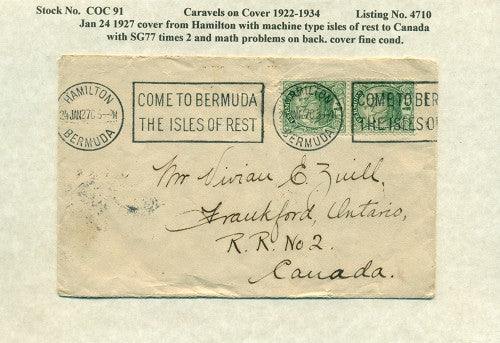 Stock No. COC 91 Caravels on Cover 1922-1934 Listing No. 4710
Jan 24 1927 cover from Hamilton with machine type isles of rest to Canada
with SG77 times 2 and math problems on back. cover fine cond.
HAMILTON
24 JAN 27
BERMUDA
COME TO BERMUDA
THE ISLES OF REST
HAMILTON
BERMUDA
COME TO BER
THE ISLES O
Mr Vivian E.
Frankford, Ontario,
R.R. No 2.
Canada.